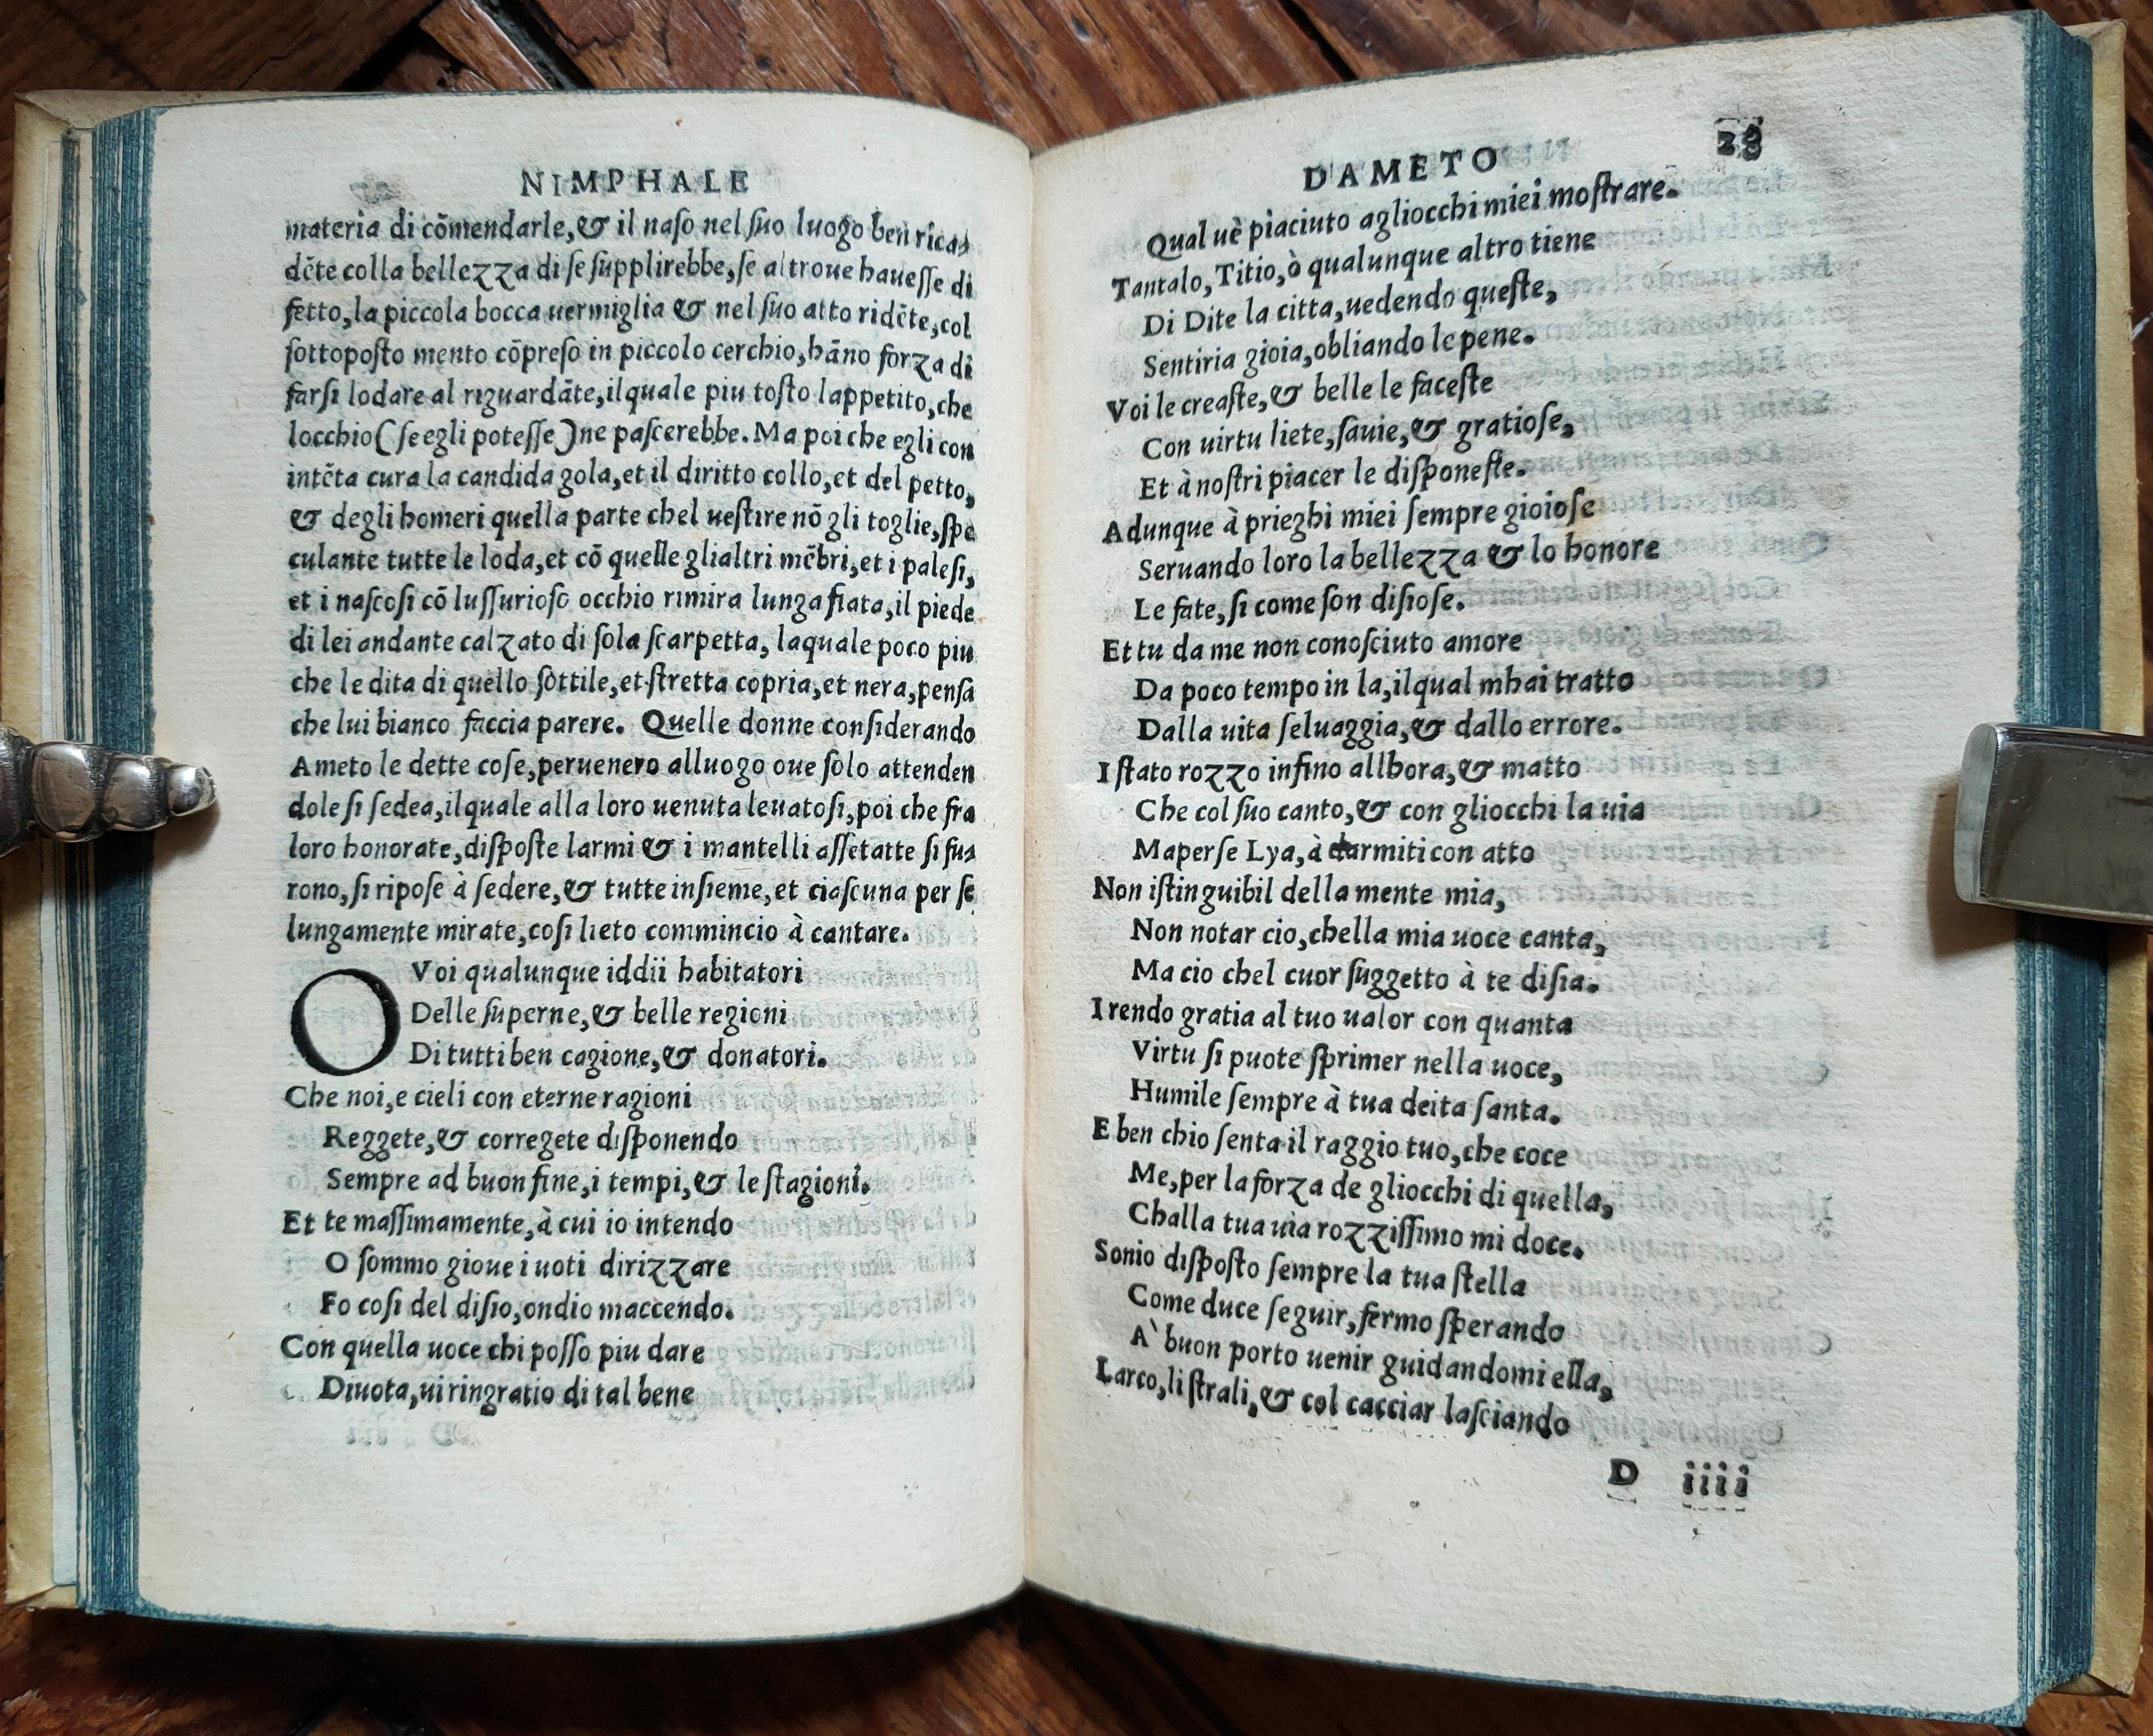 NIMPHALE
materia di cōmendarle,& il naſo nel ſuo luogo ben rica⸗
dēte colla bellezza di ſe ſupplirebbe,ſe altroue haueſſe di
fetto,la piccola bocca uermiglia & nel ſuo atto ridēte,col
ſottopoſto mento cōpreſo in piccolo cerchio,hāno forza di
farſi lodare al riguardāte,ilquale piu toſto lappetito,che
locchio(ſe egli poteſſe)ne paſcerebbe. Ma poi che egli con
intēta cura la candida gola,et il diritto collo,et del petto,
& degli homeri quella parte chel ueſtire nō gli toglie,ſpe
culante tutte le loda,et cō quelle glialtri mēbri,et i paleſi,
et i naſcoſi cō luſſurioſo occhio rimira lunga fiata,il piede
di lei andante calzato di ſola ſcarpetta, laquale poco piu
che le dita di quello ſottile,et ſtretta copria,et nera,penſa
che lui bianco faccia parere. Quelle donne conſiderando
Ameto le dette coſe,peruenero alluogo oue ſolo attenden
dole ſi ſedea,ilquale alla loro uenuta leuatoſi,poi che fra
loro honorate,diſpoſte larmi & i mantelli aſſetatte ſi fu⸗
rono,ſi ripoſe à ſedere,& tutte inſieme,et ciaſcuna per ſe
lungamente mirate,coſi lieto commincio à cantare.
O Voi qualunque iddii habitatori
Delle ſuperne,& belle regioni
Di tutti ben cagione,& donatori.
Che noi,e cieli con eterne ragioni
Reggete,& corregete diſponendo
Sempre ad buon fine,i tempi,& le ſtagioni.
Et te maſſimamente,à cui io intendo
O ſommo gioue i uoti dirizzare
Fo coſi del diſio,ondio maccendo.
Con quella uoce chi poſſo piu dare
Diuota,ui ringratio di tal bene
DAMETO
Qual uè piaciuto agliocchi miei moſtrare.
Tantalo,Titio,ò qualunque altro tiene
Di Dite la citta,uedendo queſte,
Sentiria gioia,obliando le pene.
Voi le creaſte,& belle le faceſte
Con uirtu liete,ſauie,& gratioſe,
Et à noſtri piacer le diſponeſte.
Adunque à prieghi miei ſempre gioioſe
Seruando loro la bellezza & lo honore
Le fate,ſi come ſon diſioſe.
Et tu da me non conoſciuto amore
Da poco tempo in la,ilqual mhai tratto
Dalla uita ſeluaggia,& dallo errore.
I ſtato rozzo infino allhora,& matto
Che col ſuo canto,& con gliocchi la uia
Maperſe Lya,à darmiti con atto
Non iſtinguibil della mente mia,
Non notar cio,chella mia uoce canta,
Ma cio chel cuor ſuggetto à te diſia.
I rendo gratia al tuo ualor con quanta
Virtu ſi puote ſprimer nella uoce,
Humile ſempre à tua deita ſanta.
E ben chio ſenta il raggio tuo,che coce
Me,per la forza de gliocchi di quella,
Challa tua uia rozziſſimo mi doce.
Sonio diſpoſto ſempre la tua ſtella
Come duce ſeguir,fermo ſperando
A` buon porto uenir guidandomi ella,
Larco,li ſtrali,& col cacciar laſciando
D iiii